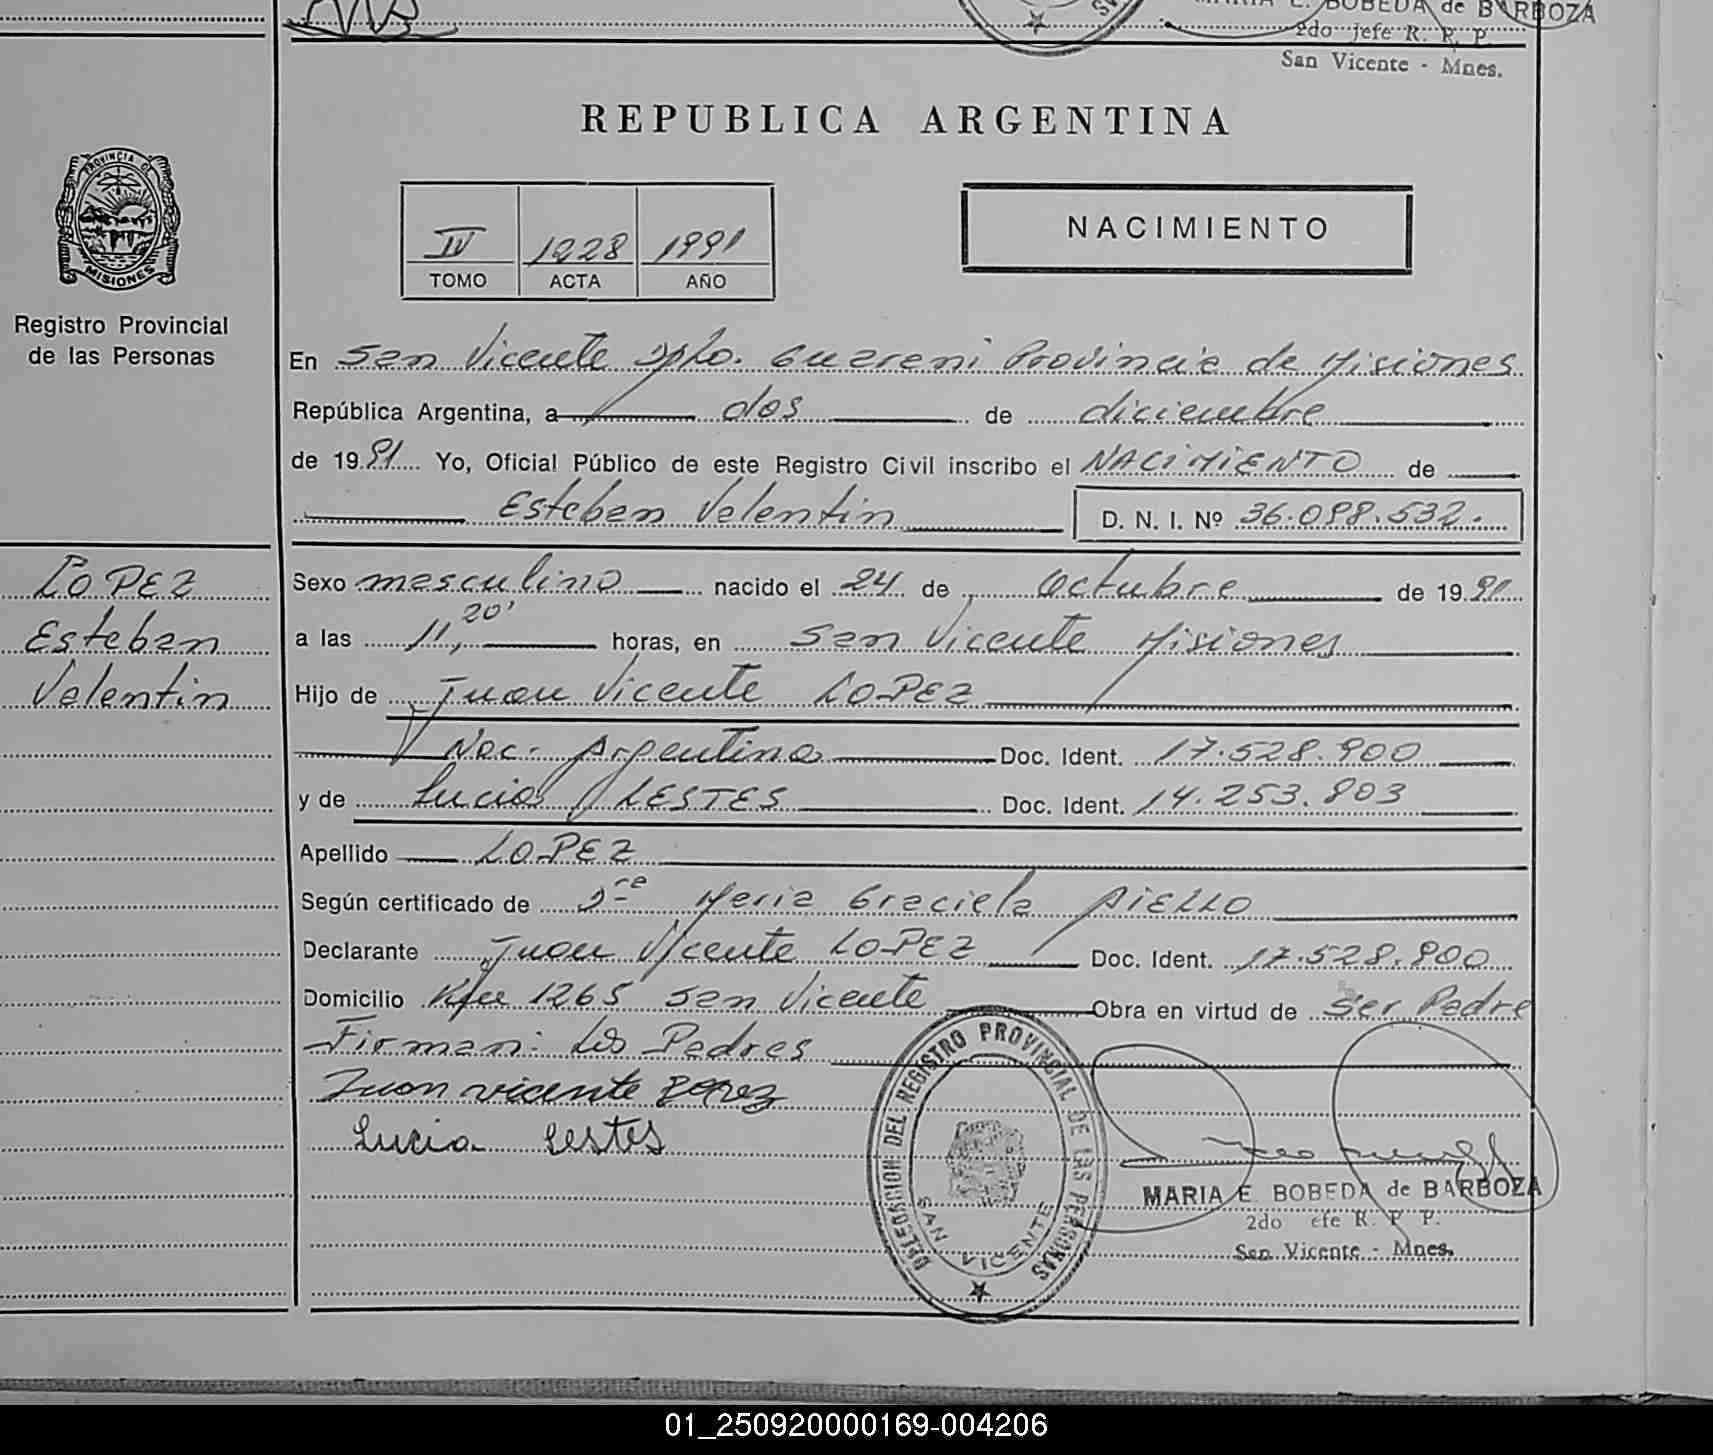 MARIA E. BOBEDA de BARBOZA
2do jefe R. R. P.
San Vicente - Mnes.
REPUBLICA ARGENTINA
PROVINCIA DE
MISIONES
Registro Provincial
de las Personas
IV 1928 1991
TOMO ACTA AÑO
NACIMIENTO
En San Vicente Dpto. Guarani Provincia de Misiones
República Argentina, a dos de diciembre
de 1991 Yo, Oficial Público de este Registro Civil inscribo el NACIMIENTO de
Esteban Valentin D. N. I. Nº 36.098.532.
LOPEZ
Esteban
Valentin
Sexo masculino nacido el 24 de Octubre de 1991
a las 11,20' horas, en San Vicente Misiones
Hijo de Juan Vicente LOPEZ
Nac. Argentina Doc. Ident. 17.528.900
y de Lucia LESTES Doc. Ident. 14.253.803
Apellido LOPEZ
Según certificado de Dra Maria Graciela AIELLO
Declarante Juan Vicente LOPEZ Doc. Ident. 17.528.900
Domicilio 1265 San Vicente Obra en virtud de Ser Padre
Firman: Los Padres
Juan vicente Lopez
Lucia Lestes
DELEGACION DEL REGISTRO PROVINCIAL DE LAS PERSONAS
SAN VICENTE
MARIA E. BOBEDA de BARBOZA
2do efe R. P P.
San Vicente - Mnes.
01_250920000169-004206